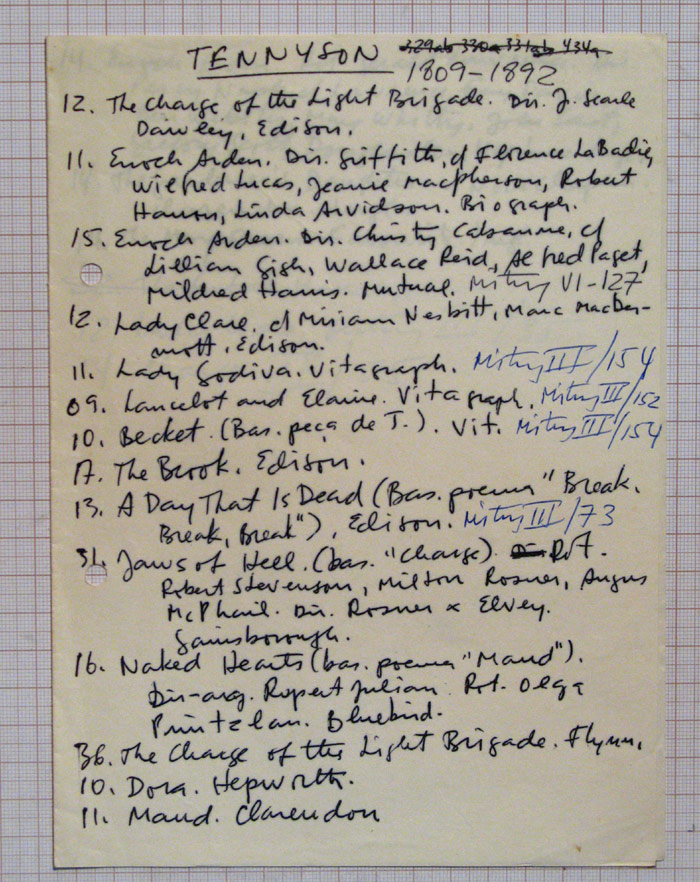 TENNYSON 329ab 330a 331ab 434a
1809-1892
12. The Charge of the Light Brigade. Dir. J. Searle
Dawley, Edison.
11. Enoch Arden. Dir. Griffith, c/ Florence LaBadie,
Wilfred Lucas, Jeanie Macpherson, Robert
Harron, Linda Arvidson. Biograph.
15. Enoch Arden. Dir. Christy Cabanne, c/
Lillian Gish, Wallace Reid, Alfred Paget,
Mildred Harris. Mutual. Mitry VI-127
12. Lady Clare, c/ Miriam Nesbitt, Marc MacDer-
mott. Edison.
11. Lady Godiva. Vitagraph. Mitry III/154
09. Lancelot and Elaine. Vitagraph. Mitry III/152
10. Becket. (Bas. peça de T.). Vit. Mitry III/154
17. The Brook. Edison.
13. A Day That Is Dead (Bas. poema "Break,
Break, Break"), Edison. Mitry III/73
31. Jaws of Hell. (bas. "Charge). Rot.
Robert Stevenson, Milton Rosner, Angus
McPhail. Dir. Rosner & Elvey.
Gainsborough.
16. Naked Hearts (bas. poema "Maud").
Dir-arg. Rupert Julian. Rot. Olga
Printzlau. Bluebird.
36. The Charge of the Light Brigade. Flynn.
10. Dora. Hepworth.
11. Maud. Clarendon